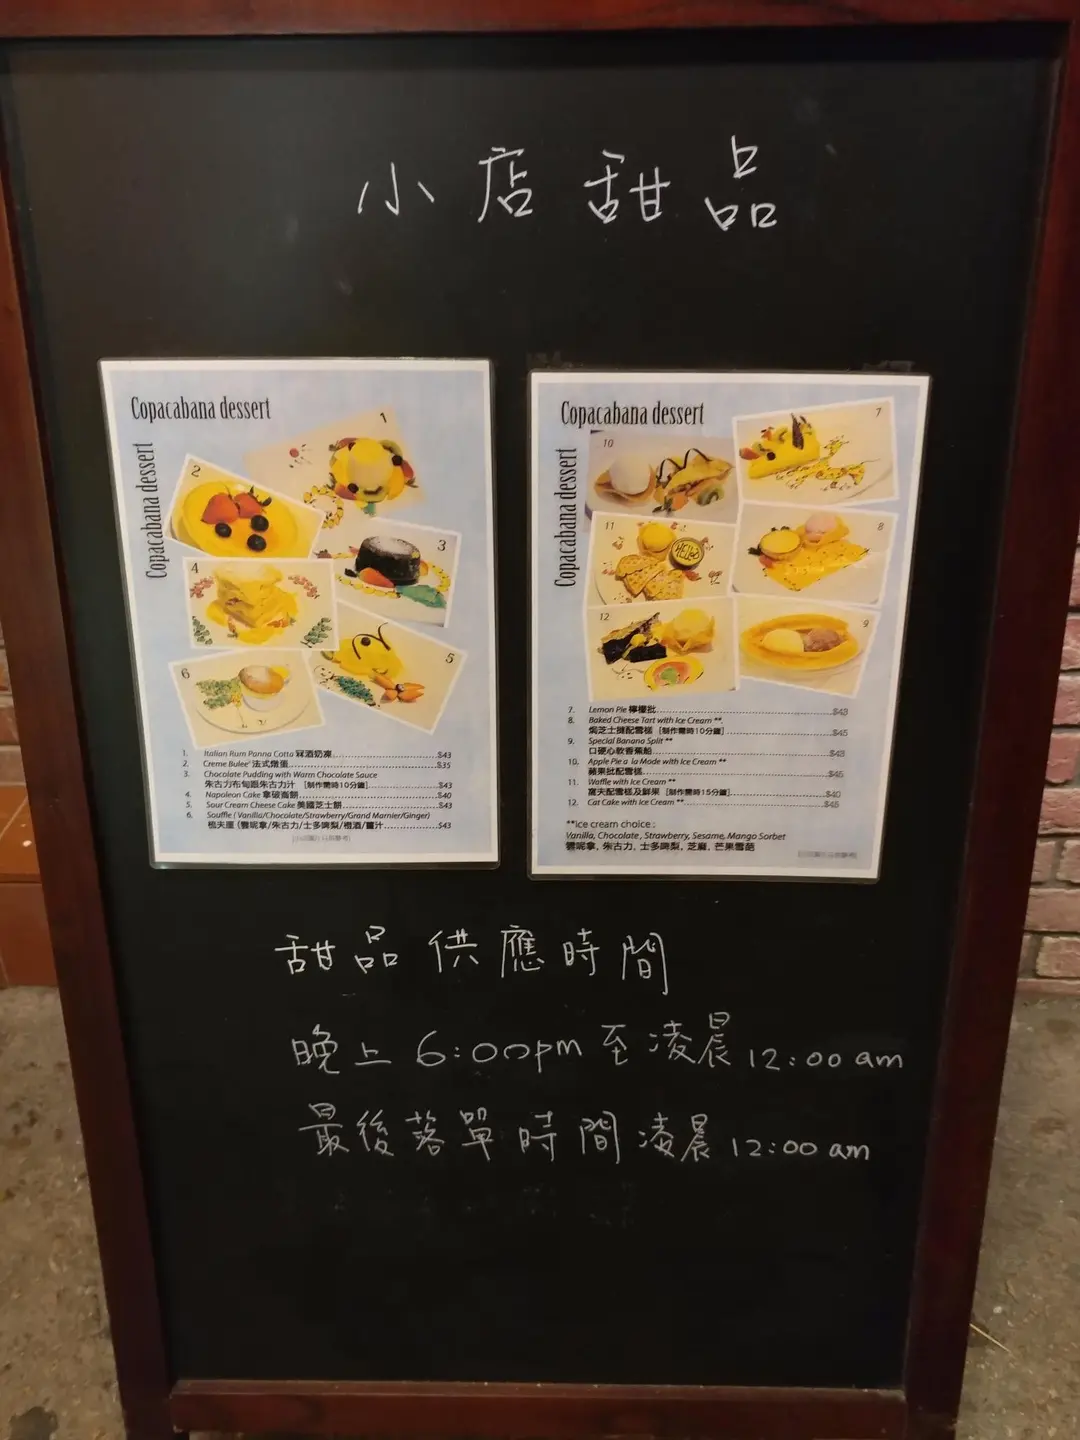 小店甜品
Copacabana dessert
Copacabana dessert
1
2
3
4
5
6
1. Italian Rum Panna Cotta 冧酒奶凍 $43
2. Creme Bulee' 法式燉蛋 $35
3. Chocolate Pudding with Warm Chocolate Sauce
朱古力布甸跟朱古力汁 [制作需時10分鐘] $43
4. Napoleon Cake 拿破崙餅 $40
5. Sour Cream Cheese Cake 美國芝士餅 $43
6. Souffle (Vanilla/Chocolate/Strawberry/Grand Marnier/Ginger)
梳夫厘 (雲呢拿/朱古力/士多啤梨/橙酒/薑汁) $43
Copacabana dessert
Copacabana dessert
10
7
11
8
12
9
7. Lemon Pie 檸檬批 $43
8. Baked Cheese Tart with Ice Cream **
焗芝士撻配雪糕 [制作需時10分鐘] $45
9. Special Banana Split **
口硬心軟香蕉船 $43
10. Apple Pie a la Mode with Ice Cream **
蘋果批配雪糕 $45
11. Waffle with Ice Cream **
窩夫配雪糕及鮮果 [制作需時15分鐘] $40
12. Cat Cake with Ice Cream ** $45
**Ice cream choice :
Vanilla, Chocolate, Strawberry, Sesame, Mango Sorbet
雲呢拿, 朱古力, 士多啤梨, 芝麻, 芒果雪葩
甜品供應時間
晚上 6:00pm 至凌晨 12:00 am
最後落單時間凌晨 12:00 am